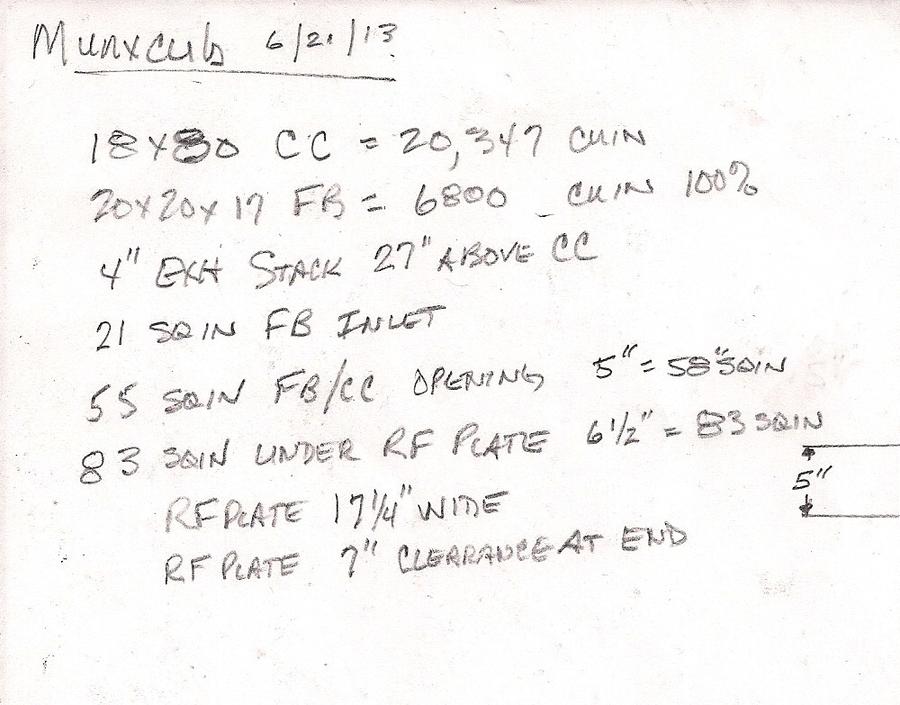 Munxcub 6/21/13
18x80 CC = 20,347 CUIN
20x20x17 FB = 6800 CUIN 100%
4" EXH STACK 27" ABOVE CC
21 SQIN FB INLET
55 SQIN FB/CC OPENING 5" = 58" SQIN
83 SQIN UNDER RF PLATE 6 1/2" = 83 SQIN
5"
RF PLATE 17 1/4" WIDE
RF PLATE 7" CLEARANCE AT END